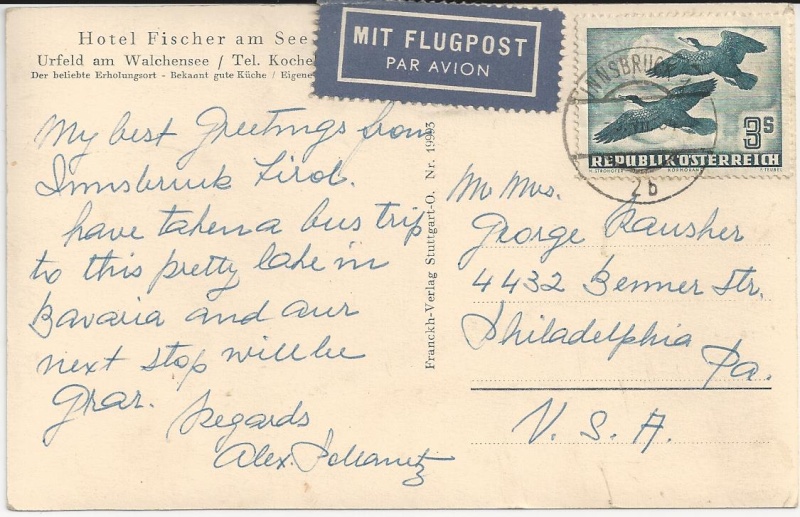 Hotel Fischer am See
Urfeld am Walchensee / Tel. Kochel
Der beliebte Erholungsort - Bekannt gute Küche / Eigene
MIT FLUGPOST
PAR AVION
INNSBRUCK
2b
3S
REPUBLIK ÖSTERREICH
KORMORAN
My best Greetings from
Innsbruck Tirol.
have taken a bus trip
to this pretty lake in
Bavaria and our
next stop will be
Graz.
Regards
Alex.
Franckh-Verlag Stuttgart-O. Nr. 19993
Mr Mrs.
George Rausher
4432 Benner Str.
Philadelphia
Pa.
U. S. A.